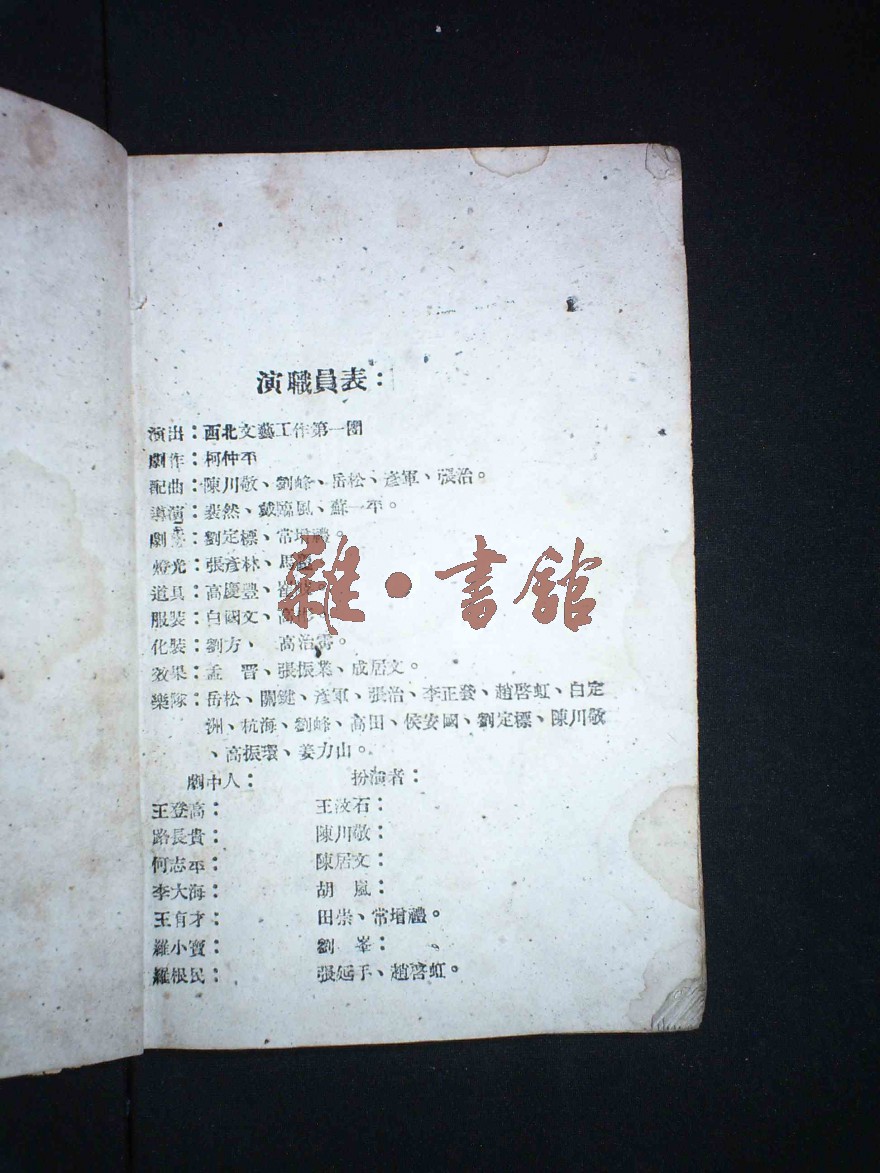 演職員表：
演出：西北文藝工作第一團
劇作：柯仲平
配曲：陳川敬、劉峰、岳松、彥軍、張治。
導演：裴然、戴臨風、蘇一平。
劇：劉定標、常增禮。
燈光：張彥林、馬
道具：高慶豐、
服裝：白國文、高
化裝：劉方、 高治
效果：孟 晋、張振業、成居文。
樂隊：岳松、關鍵、彥軍、張治、李正發、趙啓虹、白定
洲、杭海、劉峰、高田、侯安國、劉定標、陳川敬
、高振環、姜力山。
劇中人： 扮演者：
王登高： 王汶石：
路長貴： 陳川敬：
何志平： 陳居文：
李大海： 胡 嵐：
王有才： 田崇、常增禮。
羅小寶： 劉 峯： 。
羅根民： 張延手、趙啓虹。
雜·書館